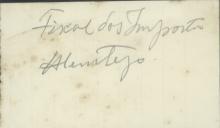 Fiscal dos Impostos
Alemtejo.